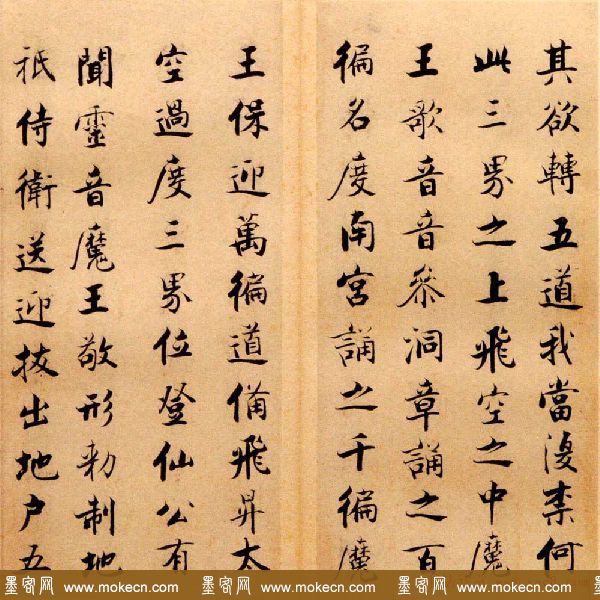 其欲轉五道我當復柰何
此三界之上飛空之中魔
王歌音音叅洞章誦之百
徧名度南宮誦之千徧魔
王保迎萬徧道俻飛昇太
空過度三界位登仙公有
聞靈音魔王敬形勑制地
祇侍衛送迎拔出地户五
墨客网 www.mokecn.com 墨客网 www.mokecn.com 墨客网 www.mokecn.com